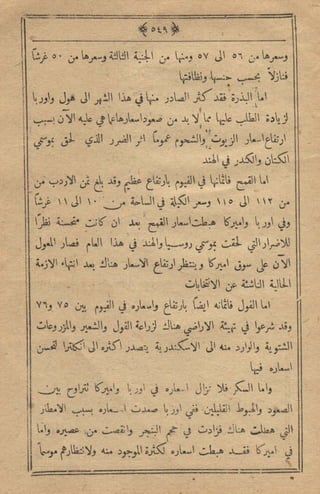 ﴿ ٥٤٩ ﴾
وسعرها من ٥٦ الى ٥٧ ومنها من الجنية الثالثة وسعرها من ٥٠ غرشا
فنازلاً بحسب جنسها ونظافتها
اما البذرة فقد كثر الصادر منها في هذا الشهر الى هول واوربا
لزيادة الطلب عليها مما لا بد من صعود اسعارها عما هي عليه الآن بسبب
ارتفاع اسعار الزيوت والشحوم عموماً اثر الضرر الذي لحق بموسمي
الكتان والكندر في الهند
اما القمح فاثمانها في الفيوم بارتفاع عظيم وقد بلغ ثمن الاردب من
من ١١٢ الى ١١٥ وسعر الكيلة في الساحة من ١٠ الى ١١ غرشاً
وفي اوربا واميركا هبطت اسعار القمح بعد ان كانت متحسنة نظراً
للاضرار التي لحقت بموسمي روسيا والهند في هذا العام فصار المعول
الآن على سوق اميركا وينتظر ارتفاع الاسعار هناك بعد انتهاء الازمة
الحالية الناشئة عن الانتخابات
اما الفول فاثمانه ايضاً بارتفاع واسعاره في الفيوم بين ٧٥ و٧٦
وقد شرعوا في تهيئة الاراضي هناك لزراعة الفول والشعير والمزروعات
الشتوية والوارد منه الى الاسكندرية يتصدر اكثره الى انكلترا لتحسن
اسعاره فيها
واما السكر فلا تزال اسعاره في اوربا واميركا تتراوح بين
الصعود والهبوط القليلين ففي اوربا صعدت اسعاره بسبب الامطار
التي هطلت هناك فزادت في حجم البنجر وانقصت من عصيره واما
في اميركا فقد هبطت اسعاره لكثرة الموجود منه ولانتظارهم موسماً